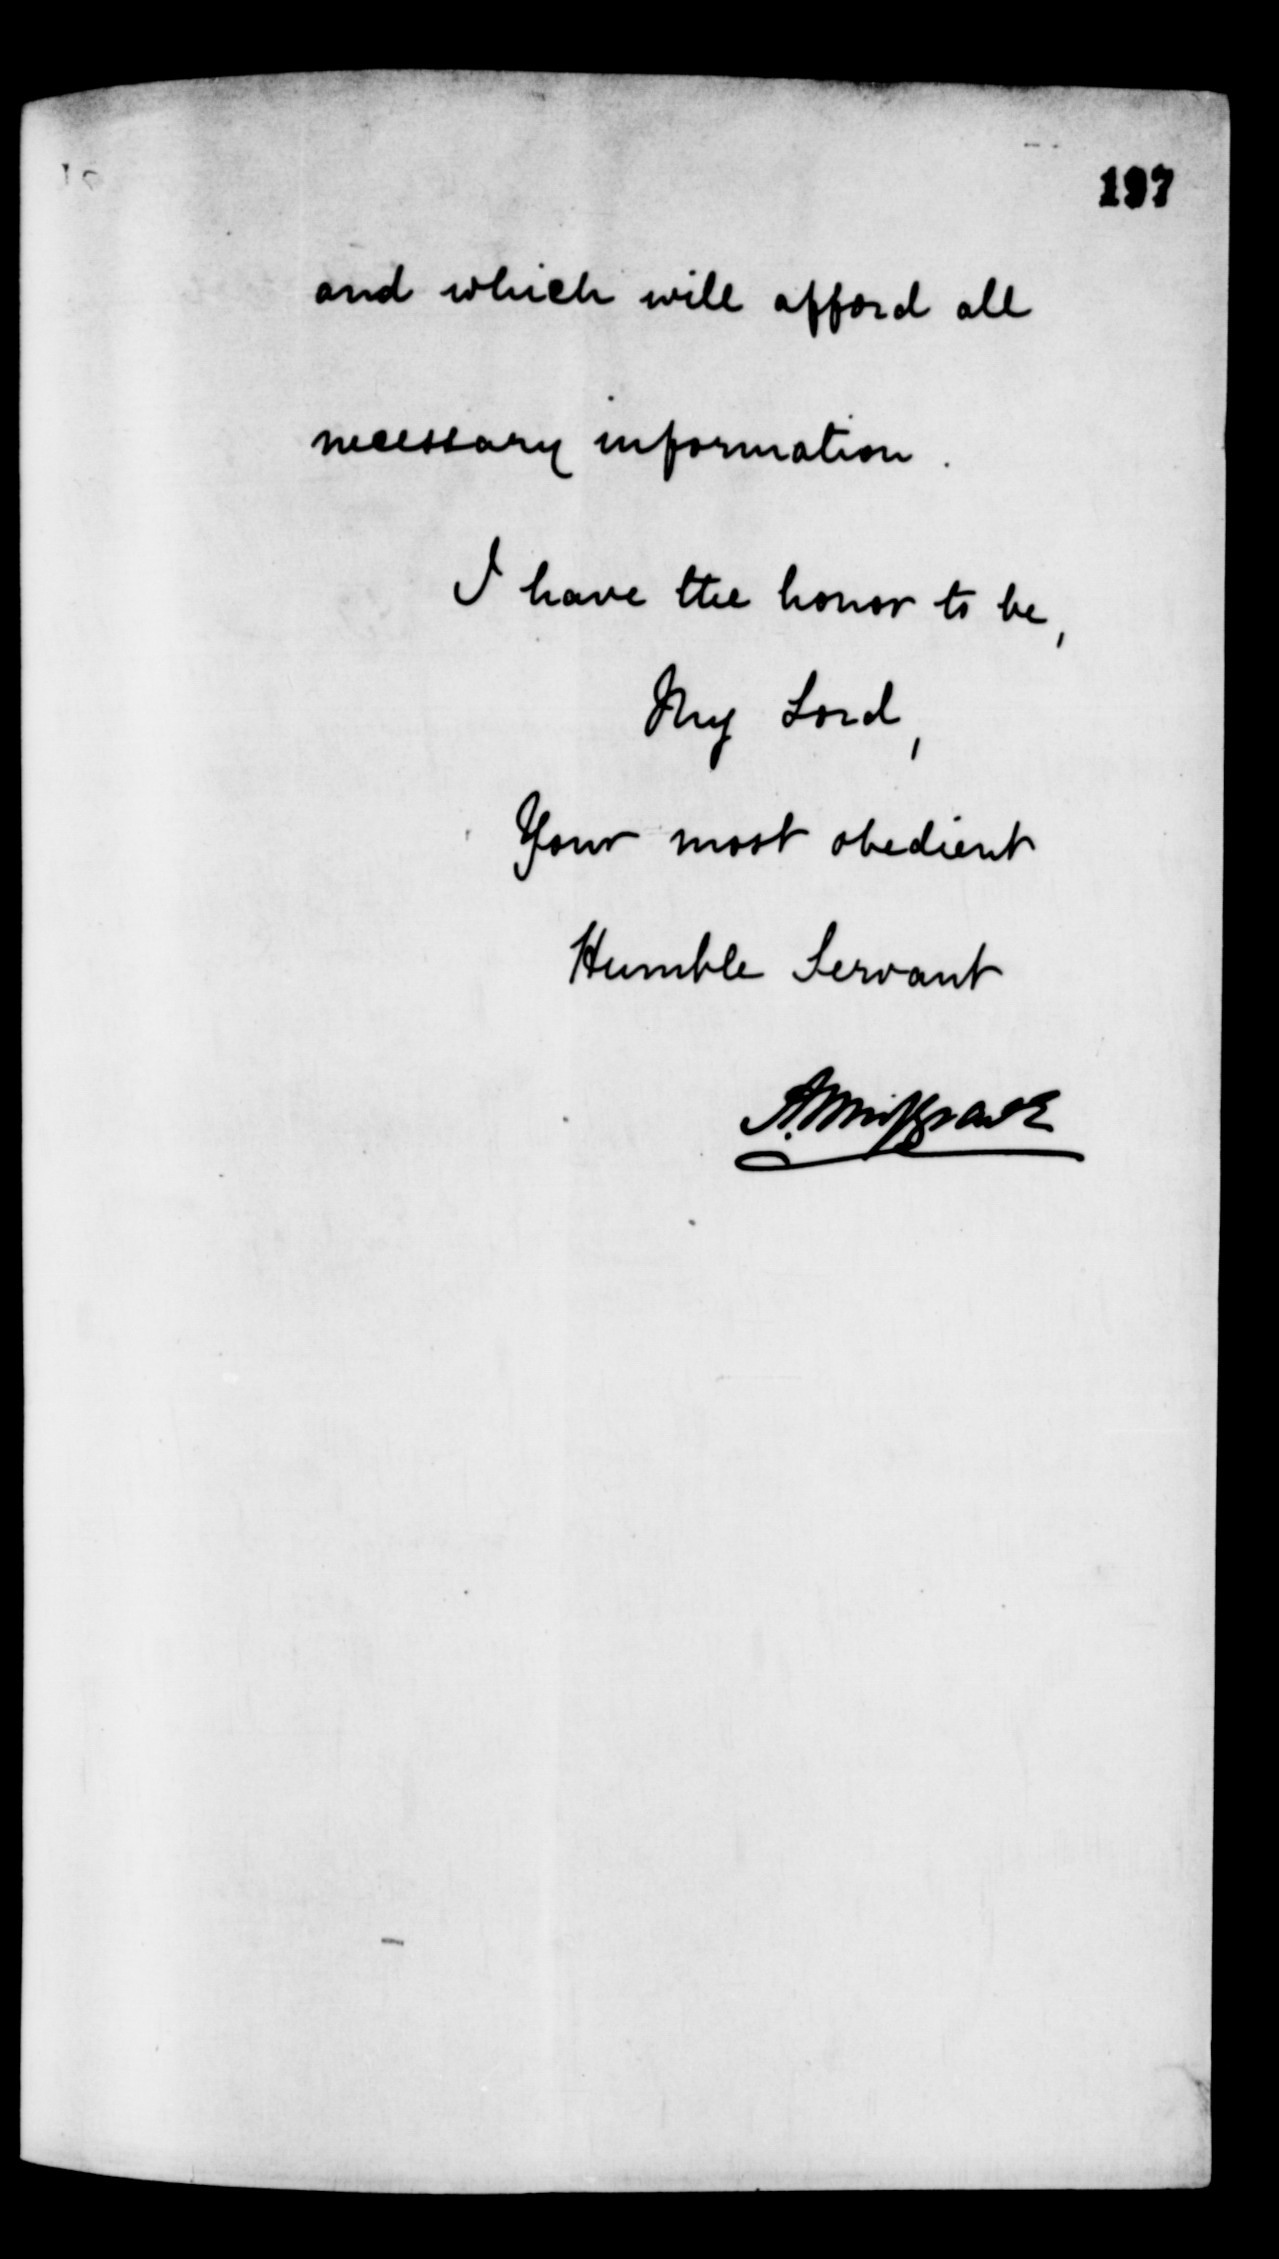 197
and which will afford all
necessary information.
I have the honor to be,
My Lord,
Your most obedient
Humble Servant
A. Musgrave